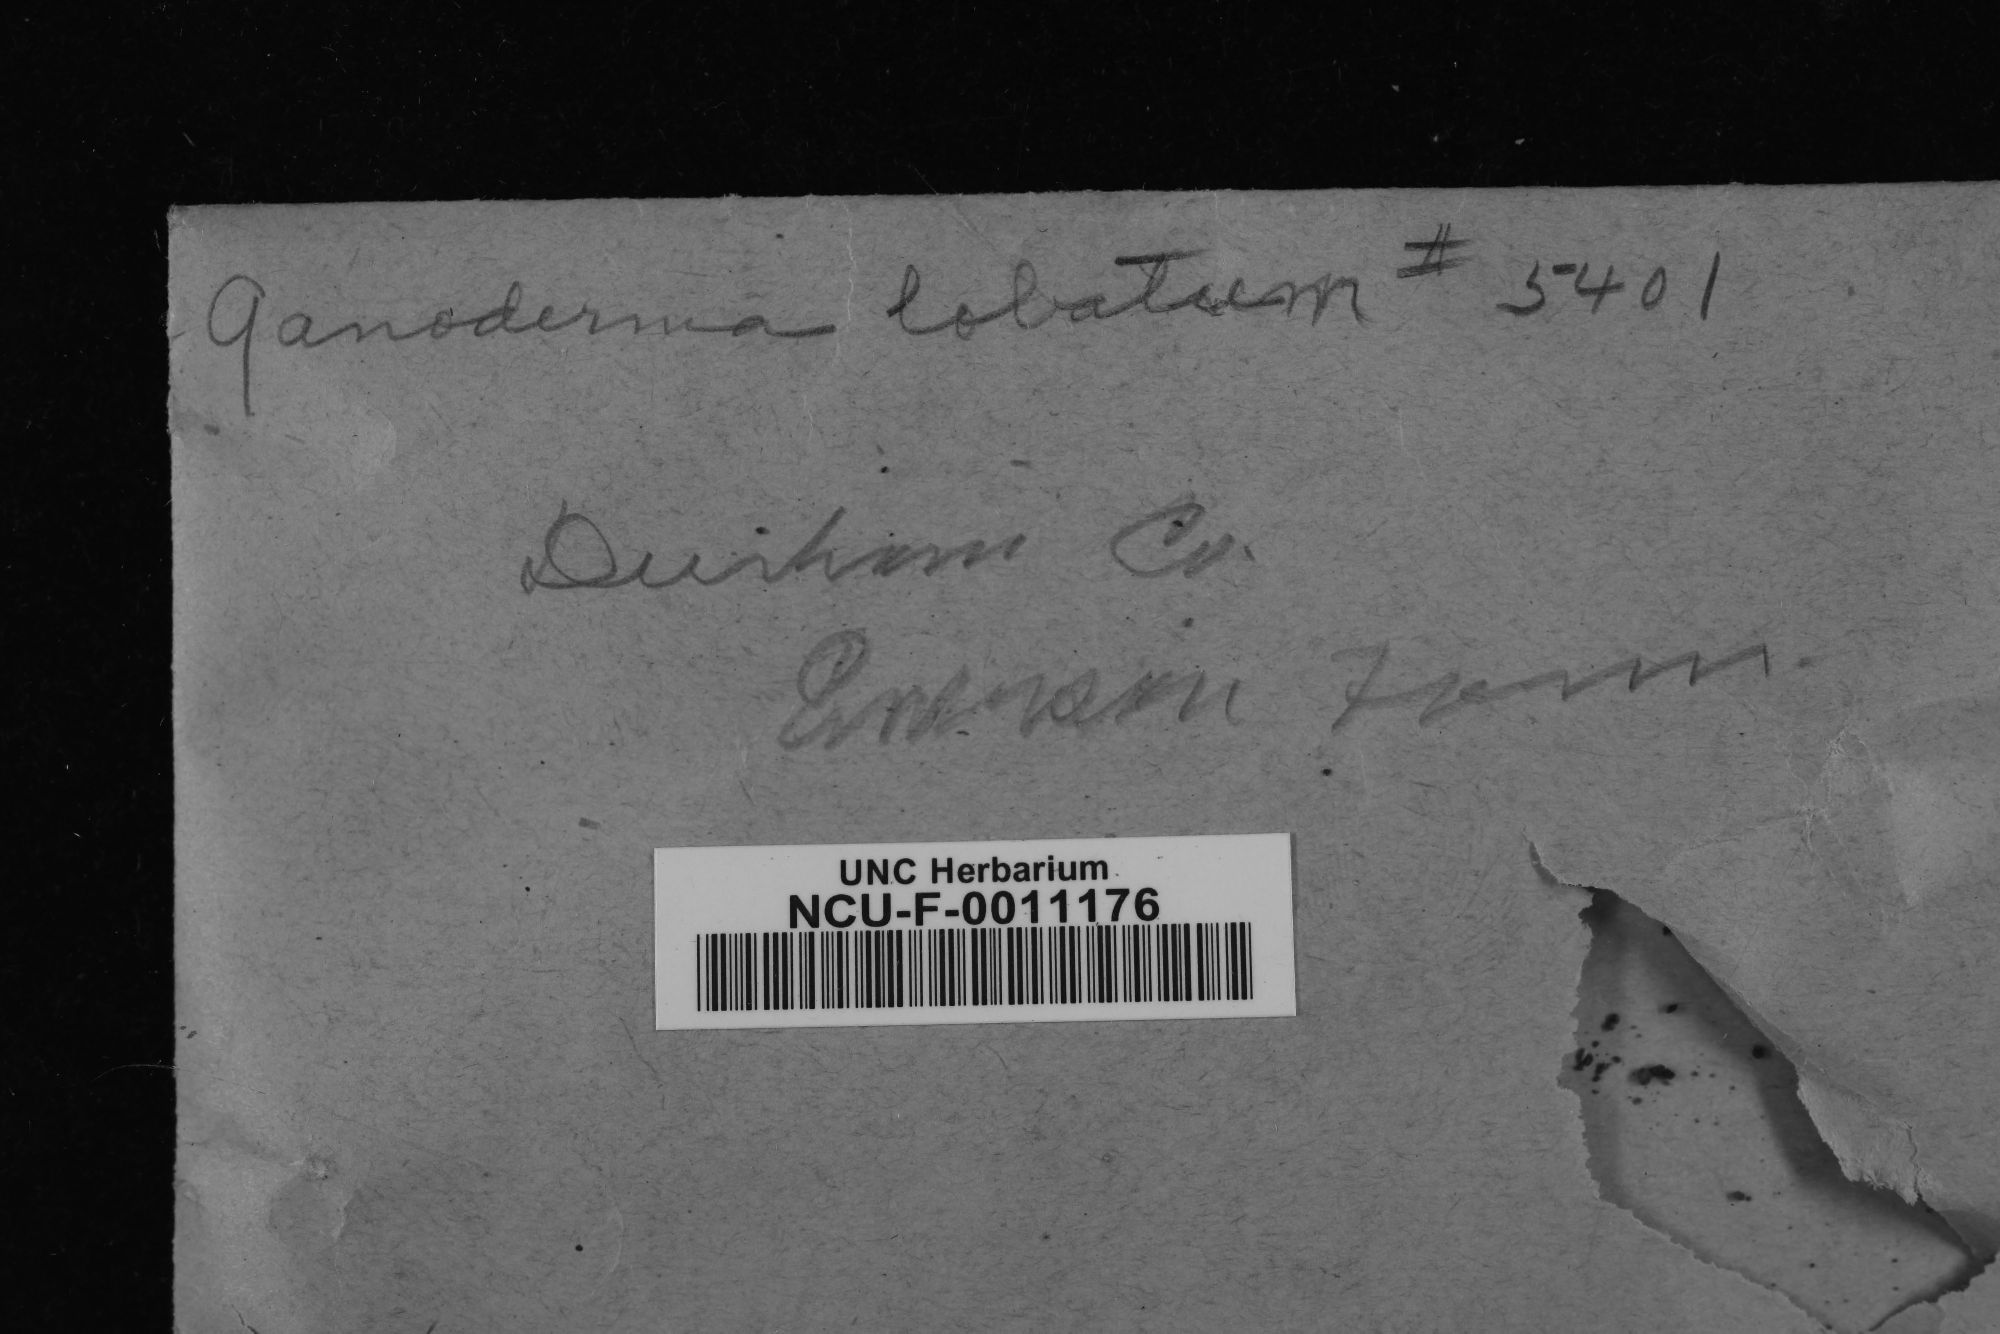 Ganoderma lobatum # 5401
Durham Co.
Farm.
UNC Herbarium
NCU-F-0011176